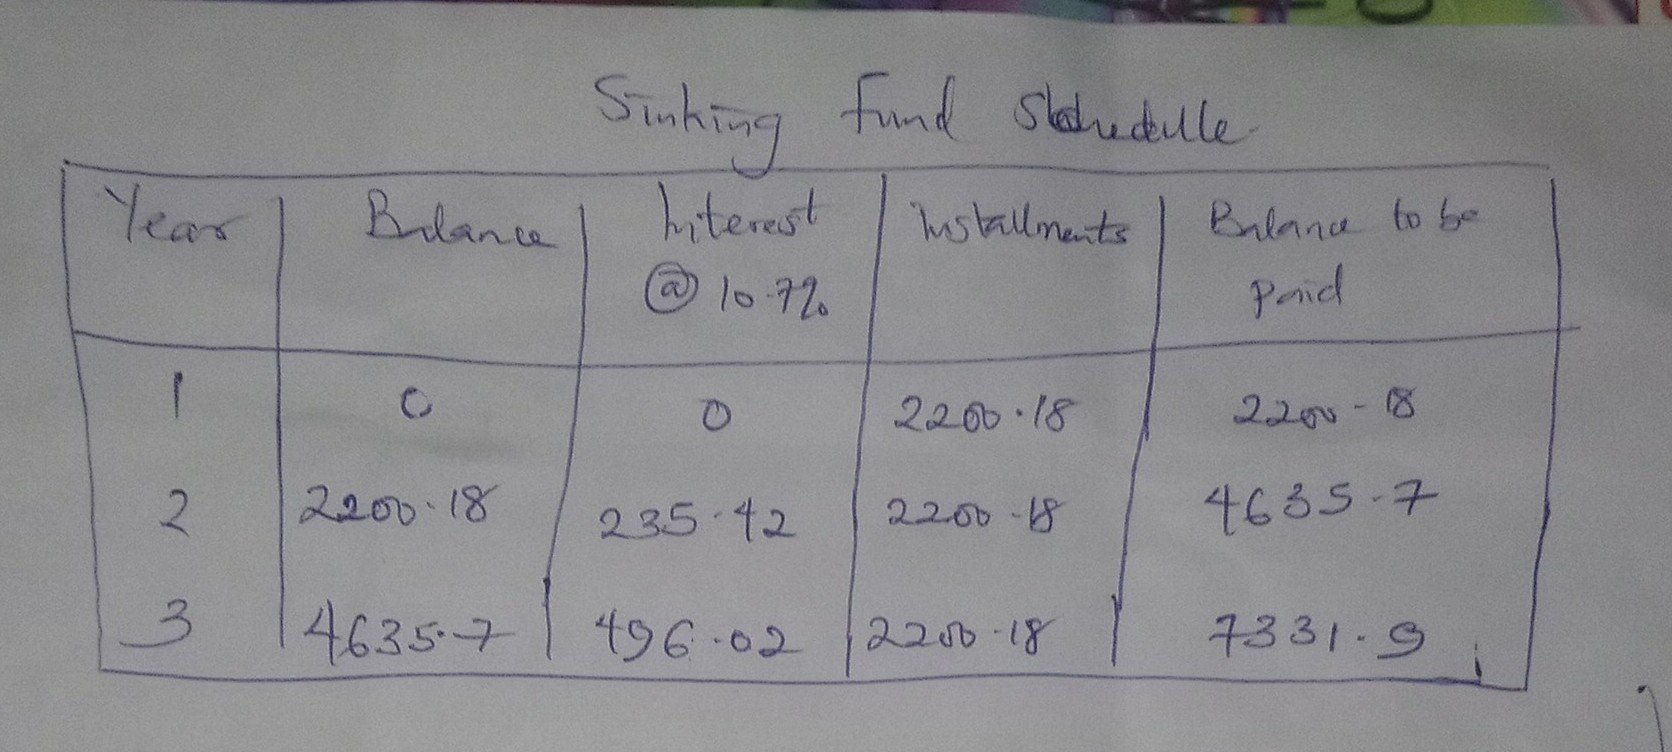 Sinking Fund Schedule
Year Balance Interest @ 10.7% Installments Balance to be paid
1 0 0 2200.18 2200.18
2 2200.18 235.42 2200.18 4635.7
3 4635.7 496.02 2200.18 7331.9